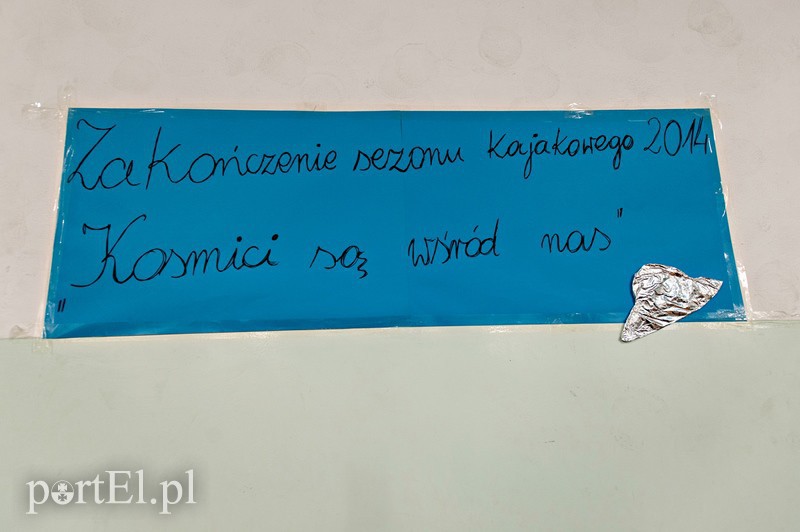 Zakończenie sezonu kajakowego 2014
„Kosmici są wśród nas”
portEl.pl